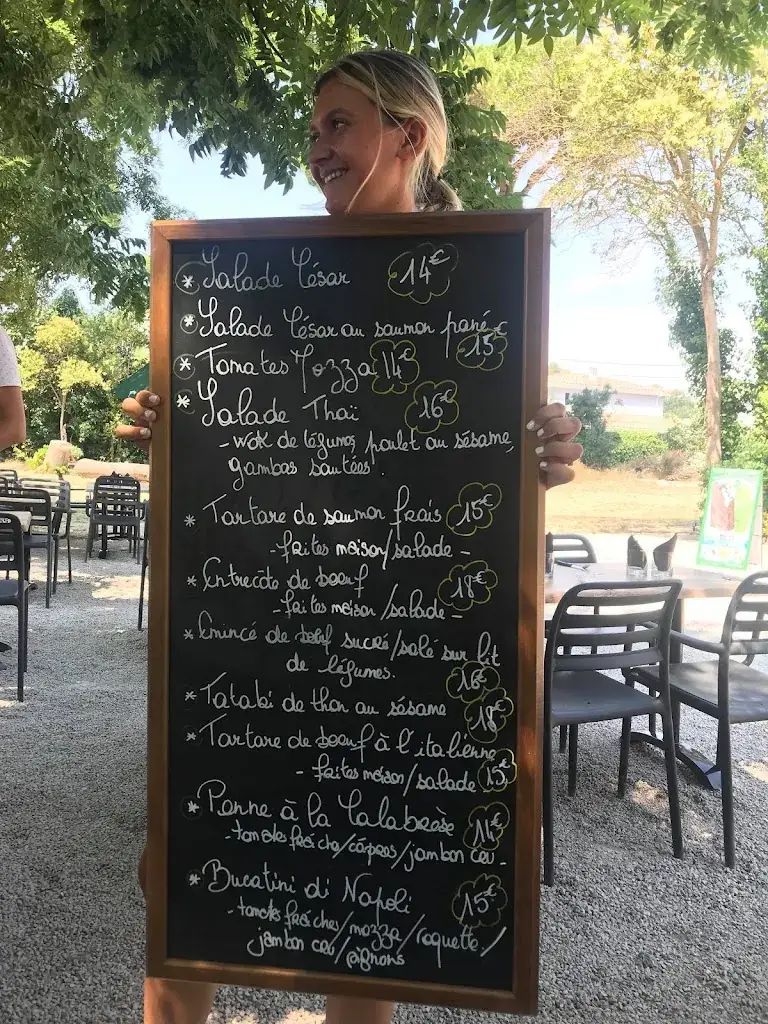 * Salade César 14€
* Salade César au saumon pané 15€
* Tomates Mozza 14€
* Salade Thaï 16€
- wok de légumes poulet au sésame,
gambas sautées.
* Tartare de saumon frais 15€
- frites maison/salade -
* Entrecôte de boeuf 18€
- frites maison/salade -
* Emincé de bœuf sucré/salé sur lit
de légumes. 16€
* Tataki de thon au sésame 18€
* Tartare de boeuf à l'italienne
- frites maison/salade 15€
* Penne à la Calabrèse 14€
- tomates fraîche/câpres/jambon cru -
* Bucatini di Napoli 15€
- tomates fraîches/mozza/roquette/
jambon cru/pignons